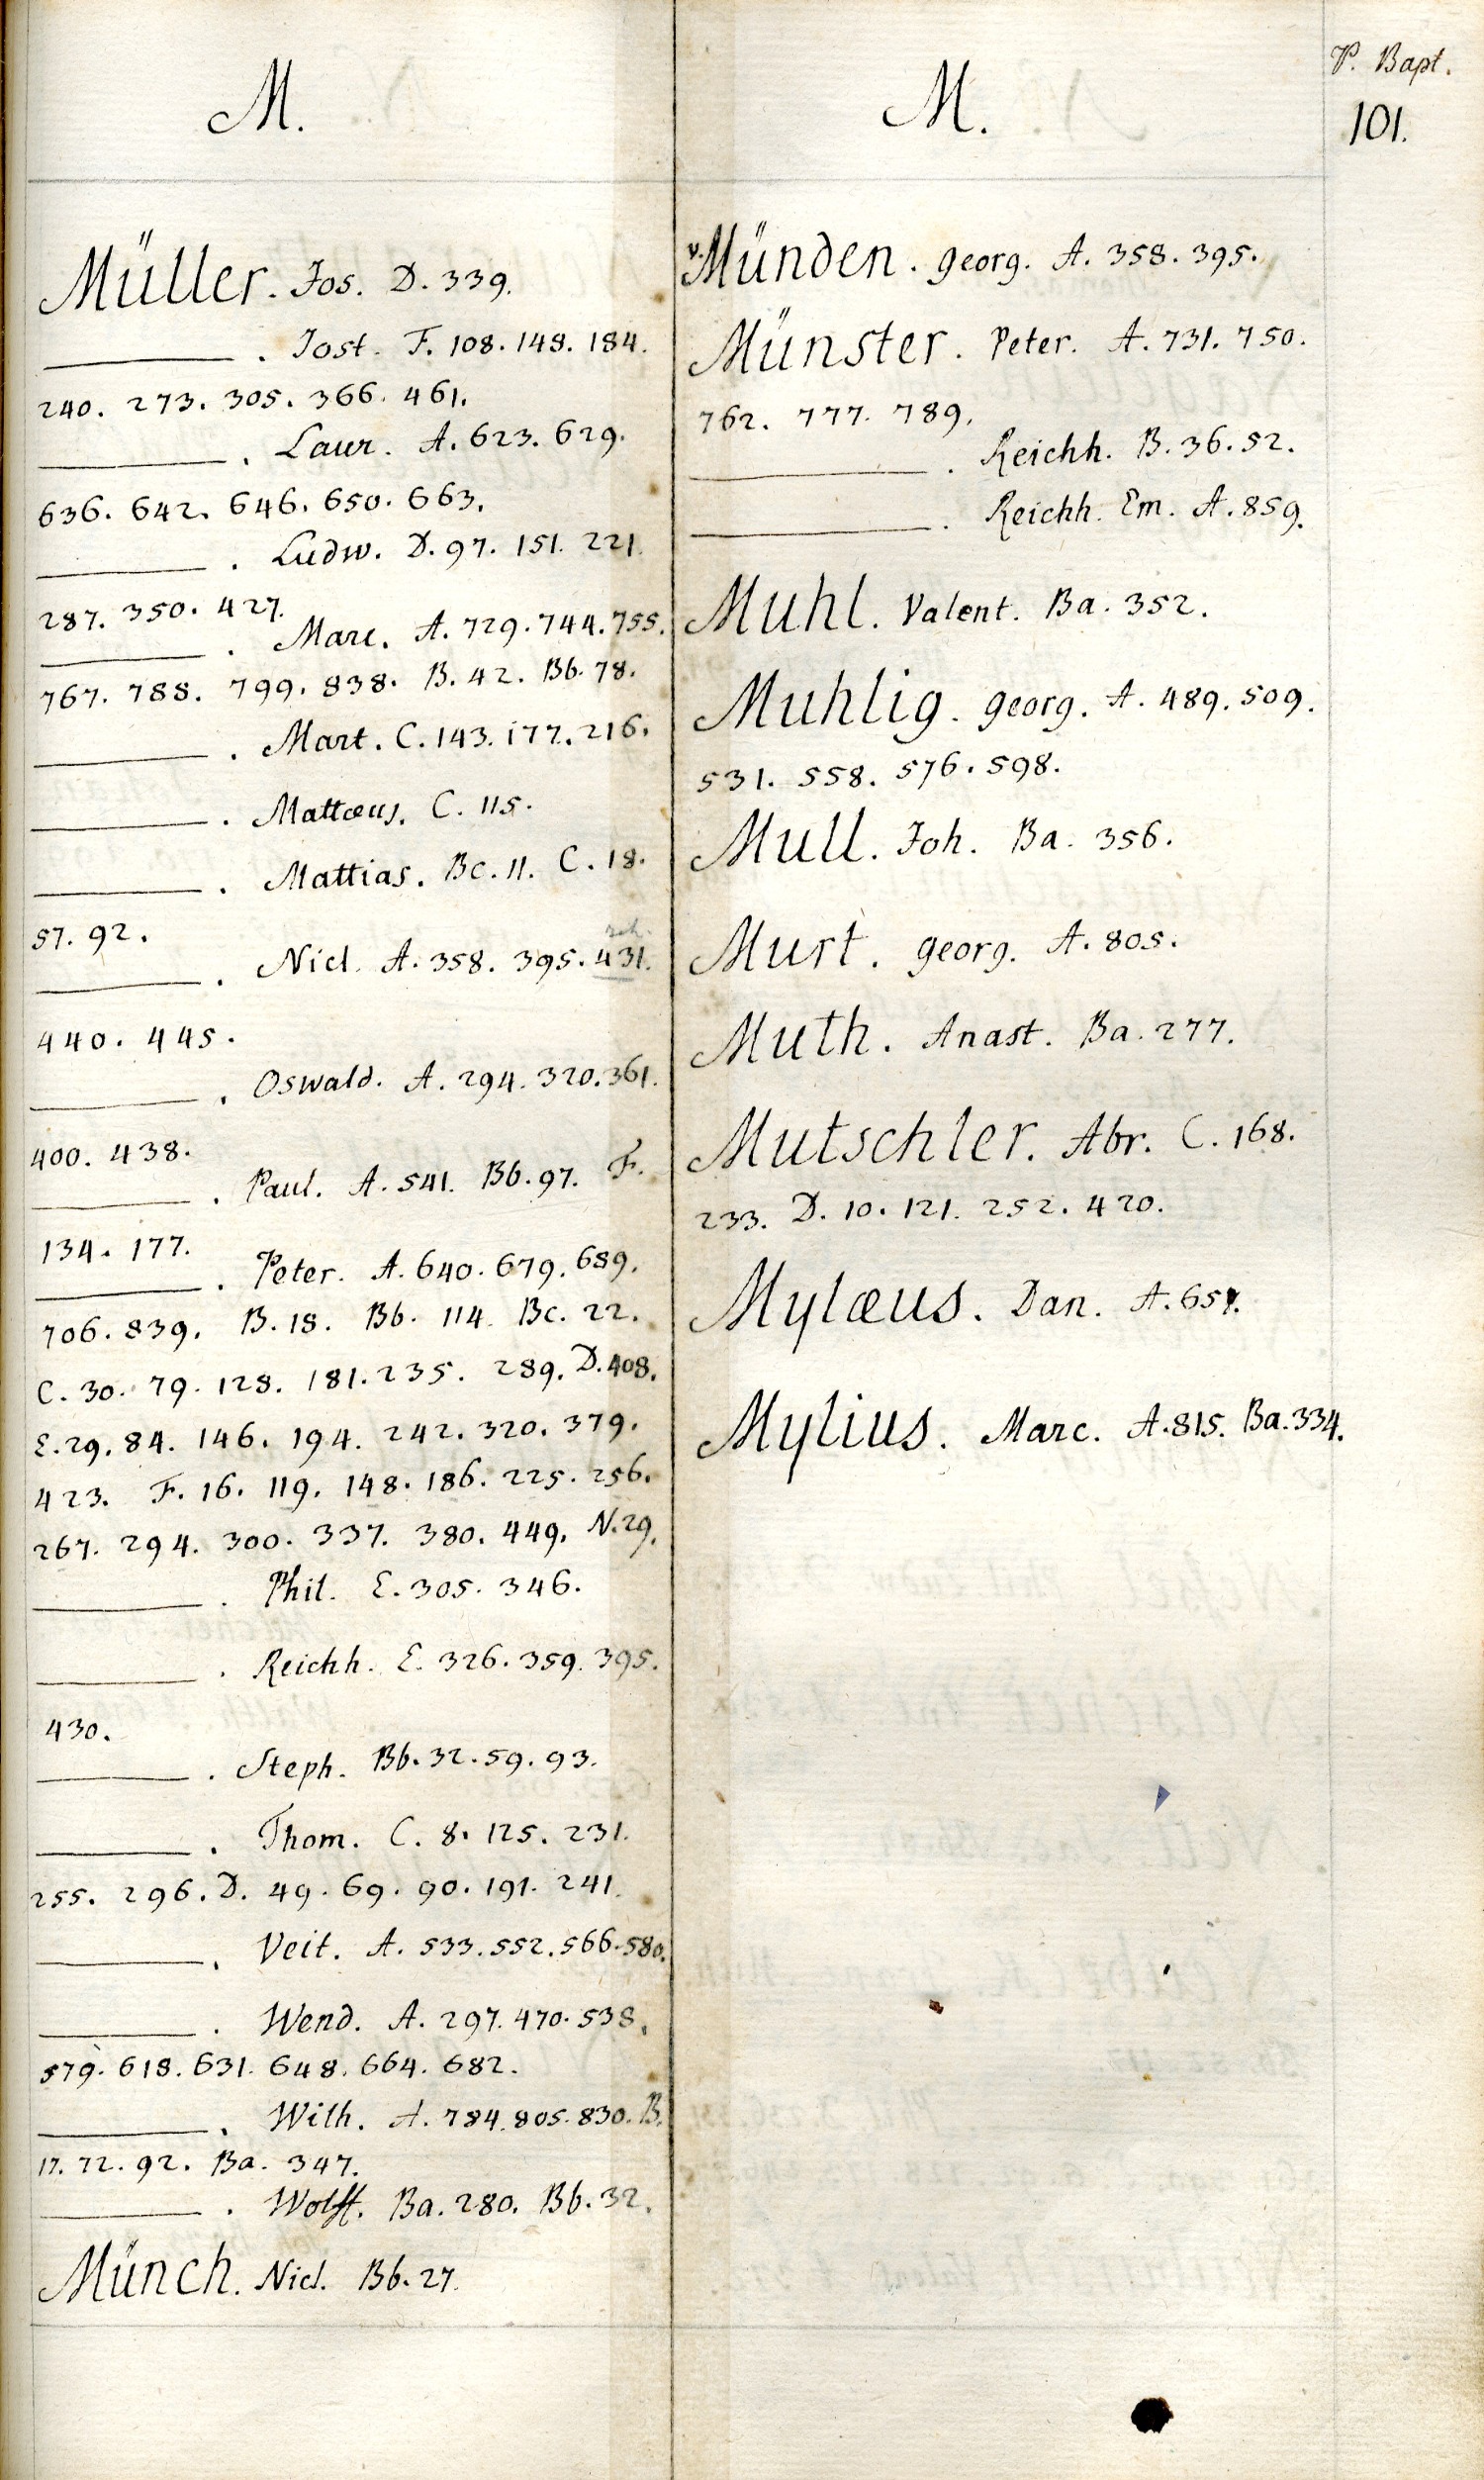 P. Bapt.
101.
M.
Müller. Jos. D. 339.
———. Jost. F. 108. 148. 184.
240. 273. 305. 366. 461.
———. Laur. A. 623. 629.
636. 642. 646. 650. 663.
———. Ludw. D. 97. 151. 221.
287. 350. 427.
———. Marc. A. 729. 744. 755.
767. 788. 799. 838. B. 42. Bb. 78.
———. Mart. C. 143. 177. 216.
———. Mattæus. C. 115.
———. Mattias. Bc. 11. C. 18.
57. 92.
———. Nicl. A. 358. 395. 431.
440. 445.
———. Oswald. A. 294. 320. 361.
400. 438.
———. Paul. A. 541. Bb. 97. F.
134. 177.
———. Peter. A. 640. 679. 689.
706. 839. B. 18. Bb. 114. Bc. 22.
C. 30. 79. 128. 181. 235. 289. D. 408.
E. 29. 84. 146. 194. 242. 320. 379.
423. F. 16. 119. 148. 186. 225. 256.
267. 294. 300. 337. 380. 449. N. 29.
———. Phil. E. 305. 346.
———. Reichh. E. 326. 359. 395.
430.
———. Steph. Bb. 32. 59. 93.
———. Thom. C. 8. 125. 231.
255. 296. D. 49. 69. 90. 191. 241.
———. Veit. A. 533. 552. 566. 580.
———. Wend. A. 297. 470. 538.
579. 618. 631. 648. 664. 682.
———. Wilh. A. 784. 805. 830. B.
17. 72. 92. Ba. 347.
———. Wolff. Ba. 280. Bb. 32.
Münch. Nicl. Bb. 27.
M.
v. Münden. georg. A. 358. 395.
Münster. Peter. A. 731. 750.
762. 777. 789.
———. Reichh. B. 36. 52.
———. Reichh. Em. A. 859.
Muhl. Valent. Ba. 352.
Muhlig. georg. A. 489. 509.
531. 558. 576. 598.
Mull. Joh. Ba. 356.
Murt. georg. A. 805.
Muth. Anast. Ba. 277.
Mutschler. Abr. C. 168.
233. D. 10. 121. 252. 420.
Mylæus. Dan. A.
Mylius. Marc. A. 815. Ba. 334.